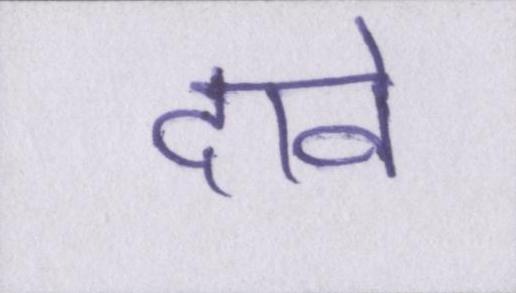 दावे